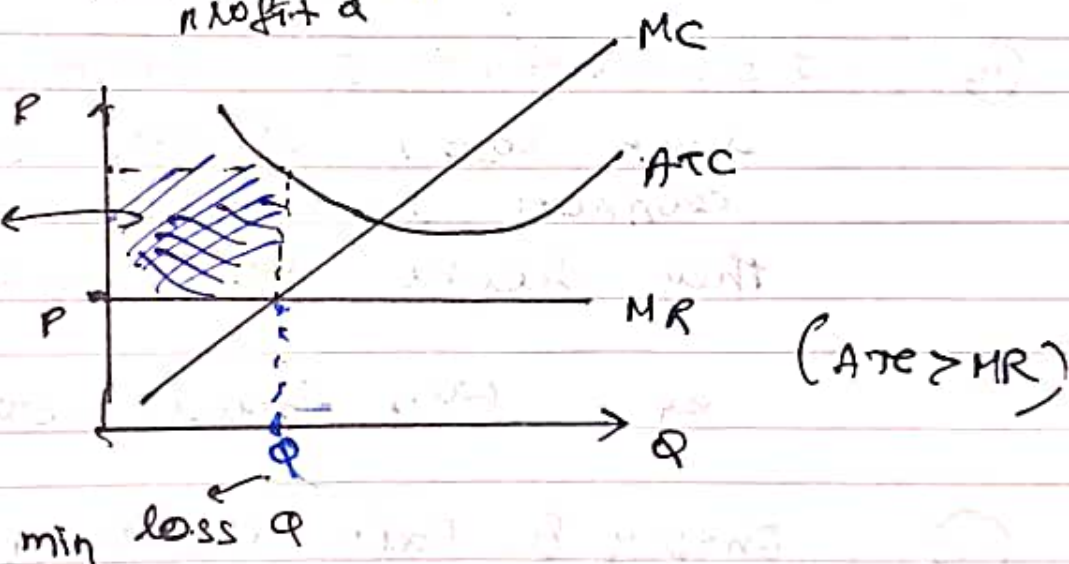 profit Q
MC
P
ATC
P
MR
(ATC > MR)
Q
Q
min loss Q